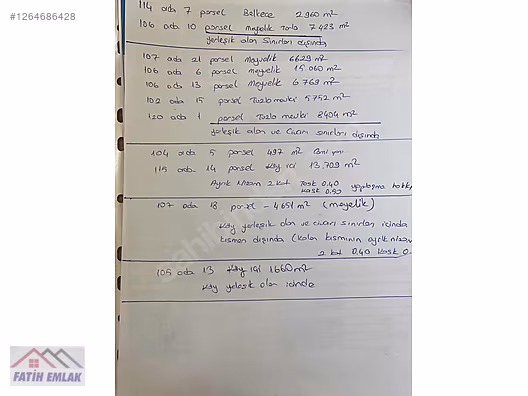 #1264686428
114 ada 7 parsel Belkece 2960 m²
106 ada 10 parsel meyvelik Tarla 7423 m²
yerleşik alan sınırları dışında
107 ada 21 parsel Meyvelik 6629 m²
106 ada 6 parsel Meyvelik 15060 m²
106 ada 13 parsel Meyvelik 6769 m²
102 ada 15 parsel Tuzla mevki 5752 m²
120 ada 1 parsel Tuzla mevki 8404 m²
yerleşik alan ve civarı sınırları dışında
104 ada 5 parsel 497 m² Cami yanı
115 ada 14 parsel Köy içi 13.709 m²
Ayrık Nizam 2 kat Task 0.40 yapılaşma hakkı
Kask 0.80
107 ada 18 parsel - 4651 m² (meyelik)
Köy yerleşik alan ve civarı sınırları içinde
kısmen dışında (Kalan kısmının ayrık nizam
2 kat 0.40 Kask 0.
105 ada 13 Köy içi 1660 m²
Köy yeleşik alan içinde
sahibinden
FATİH EMLAK